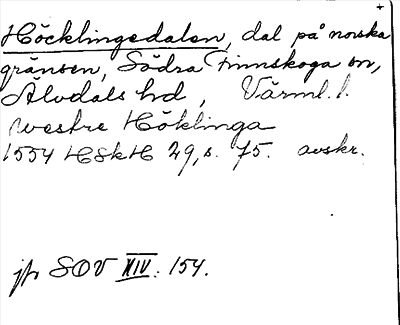 +
Höcklingedalen, dal på norska
gränsen, Södra Finnskoga sn,
Älvdals hd, Värml. l.
westre Höklinga
1554 HSkH 29, s. 75. avskr.
jfr SOV XIV: 154.